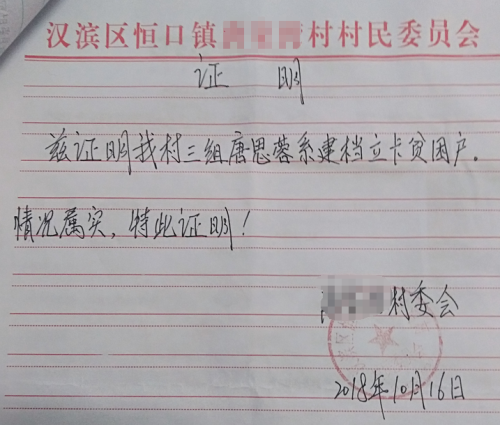 汉滨区恒口镇村村民委员会
证 明
兹证明我村三组唐思蓉系建档立卡贫困户。
情况属实，特此证明！
村委会
2018年10月16日